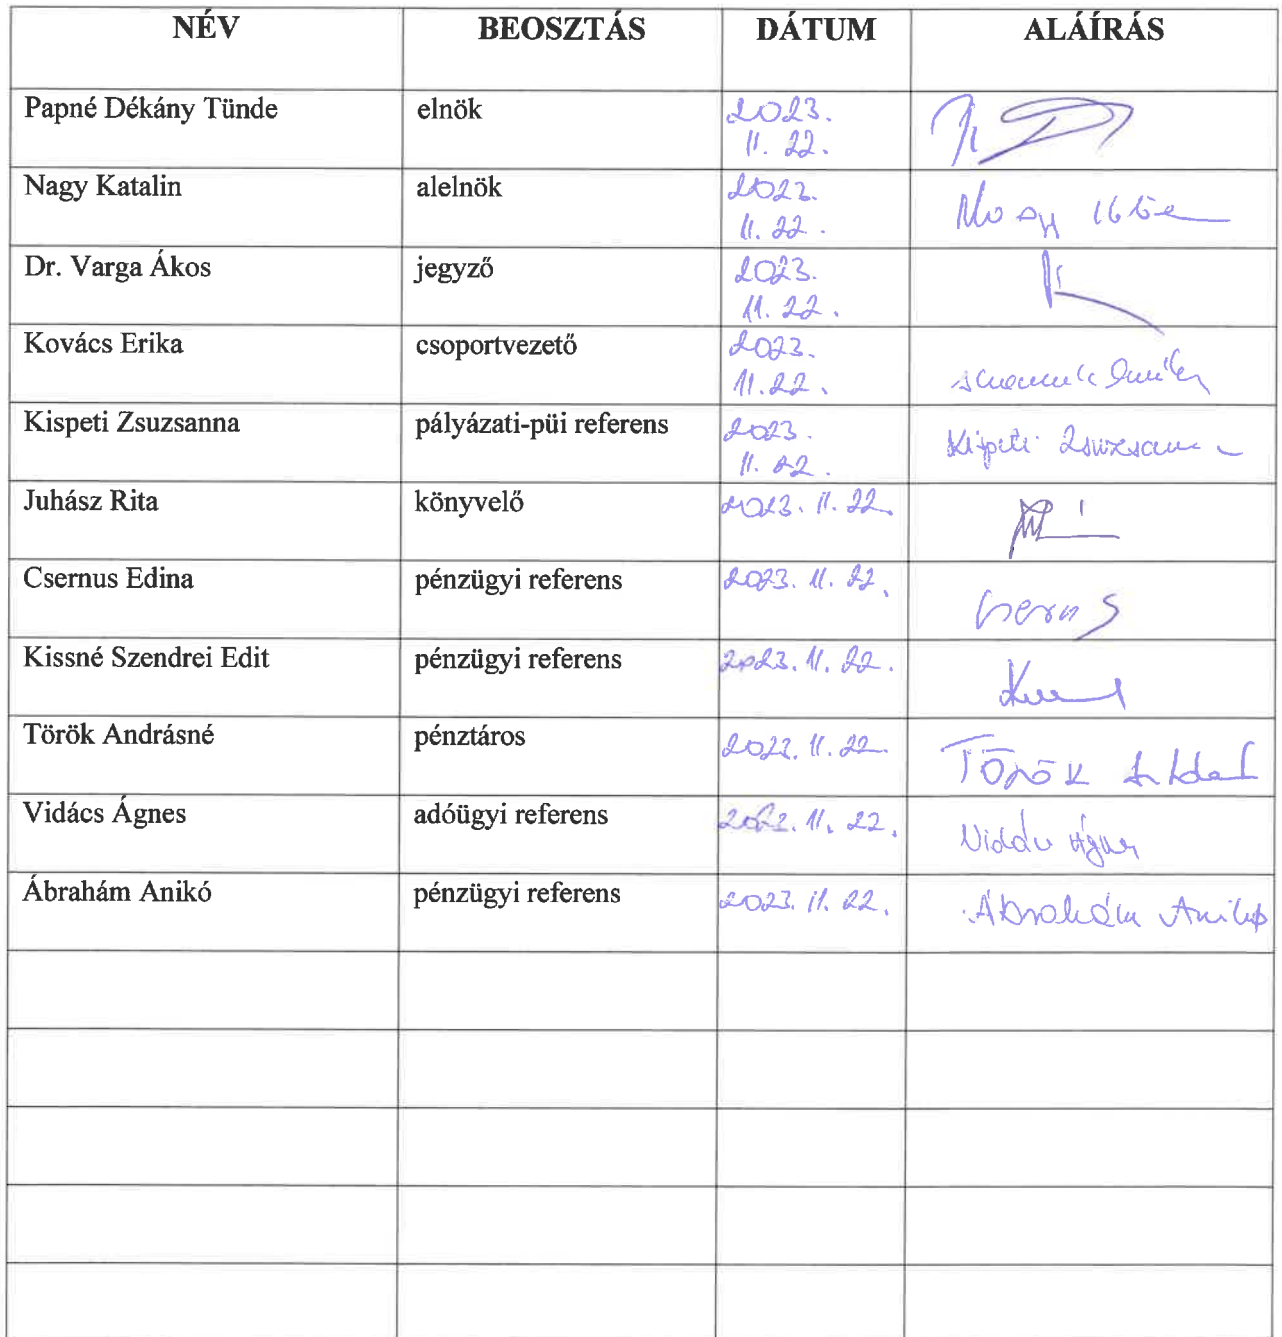 NÉV BEOSZTÁS DÁTUM ALÁÍRÁS
Papné Dékány Tünde elnök 2023.
11. 22.
Nagy Katalin alelnök 2023.
11. 22.
Nagy
Dr. Varga Ákos jegyző 2023.
11. 22.
Kovács Erika csoportvezető 2023.
11. 22.
Kispeti Zsuzsanna pályázati-püi referens 2023.
11. 22.
Kispeti Zsuzsanna
Juhász Rita könyvelő 2023. 11. 22.
Csernus Edina pénzügyi referens 2023. 11. 22.
Kissné Szendrei Edit pénzügyi referens 2023. 11. 22.
Török Andrásné pénztáros 2023. 11. 22.
Török
Vidács Ágnes adóügyi referens 11. 22.
Vidács Ágnes
Ábrahám Anikó pénzügyi referens 2023. 11. 22.
Ábrahám Anikó